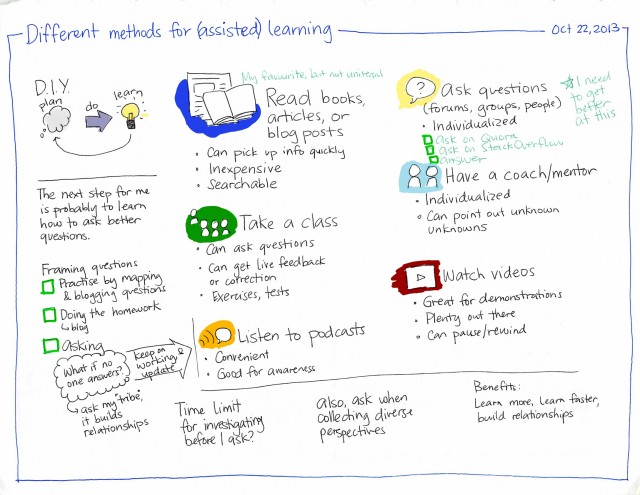 Different methods for (assisted) learning
Oct 22, 2013
D.I.Y.
plan
do
learn
The next step for me
is probably to learn
how to ask better
questions.
Framing questions
Practise by mapping
& blogging questions
Doing the homework
↳ blog
Asking
What if no
one answers?
keep on
working &
update
↳ ask my tribe,
it builds
relationships
My favourite, but not universal
Read books,
articles, or
blog posts
• Can pick up info quickly
• Inexpensive
• Searchable
Take a class
• Can ask questions
• Can get live feedback
or correction
• Exercises, tests
Listen to podcasts
• Convenient
• Good for awareness
?
Ask questions
(forums, groups, people)
• Individualized
Ask on Quora
Ask on StackOverflow
Answer
☆ I need
to get
better
at this
Have a coach/mentor
• Individualized
• Can point out unknown
unknowns
Watch videos
• Great for demonstrations
• Plenty out there
• Can pause/rewind
Time limit
for investigating
before I ask?
Also, ask when
collecting diverse
perspectives
Benefits:
Learn more, learn faster,
build relationships